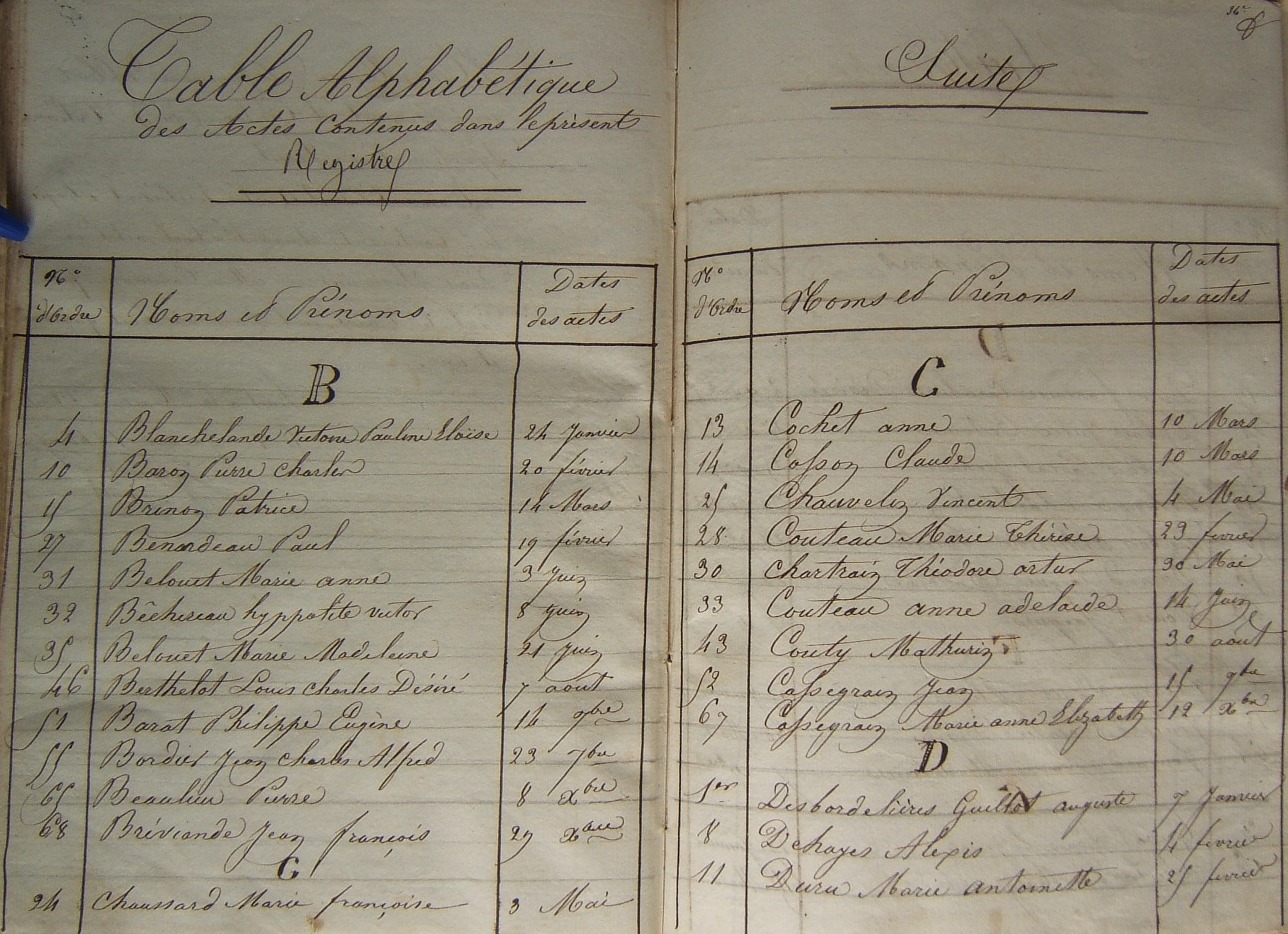 Table Alphabétique
des Actes Contenus dans le présent
Registre
N° d'Ordre Noms et Prénoms Dates des actes
B
4 Blanchelande Victoire Pauline Eloïse 24 Janvier
10 Baron Pierre Charles 20 février
15 Brinon Patrice 14 Mars
27 Benardeau Paul 19 février
31 Belouet Marie anne 3 Juin
32 Bêchereau hyppolite victor 8 Juin
35 Belouet Marie Madeleine 21 Juin
46 Berthelot Louis Charles Désiré 7 aout
51 Barat Philippe Eugène 14 9bre
55 Bordier Jean Charles Alfred 23 7bre
65 Beaulieu Pierre 8 Xbre
68 Bréviande Jean françois 29 Xbre
C
24 Chaussard Marie françoise 3 Mai
Suite
N° d'Ordre Noms et Prénoms Dates des actes
C
13 Cochet anne 10 Mars
14 Casson Claude 10 Mars
25 Chauvelin Vincent 4 Mai
28 Couteau Marie Thérèse 23 février
30 Chartrain Théodore artur 30 Mai
33 Couteau anne adelaide 14 Juin
43 Couty Mathurin 30 aout
52 Cassegrain Jean 15 9bre
67 Cassegrain Marie anne Elizabeth 12 Xbre
D
1er Desbordelières Guillot auguste 7 Janvier
8 Dehayes Alexis 4 février
11 Duru Marie antoinette 25 février